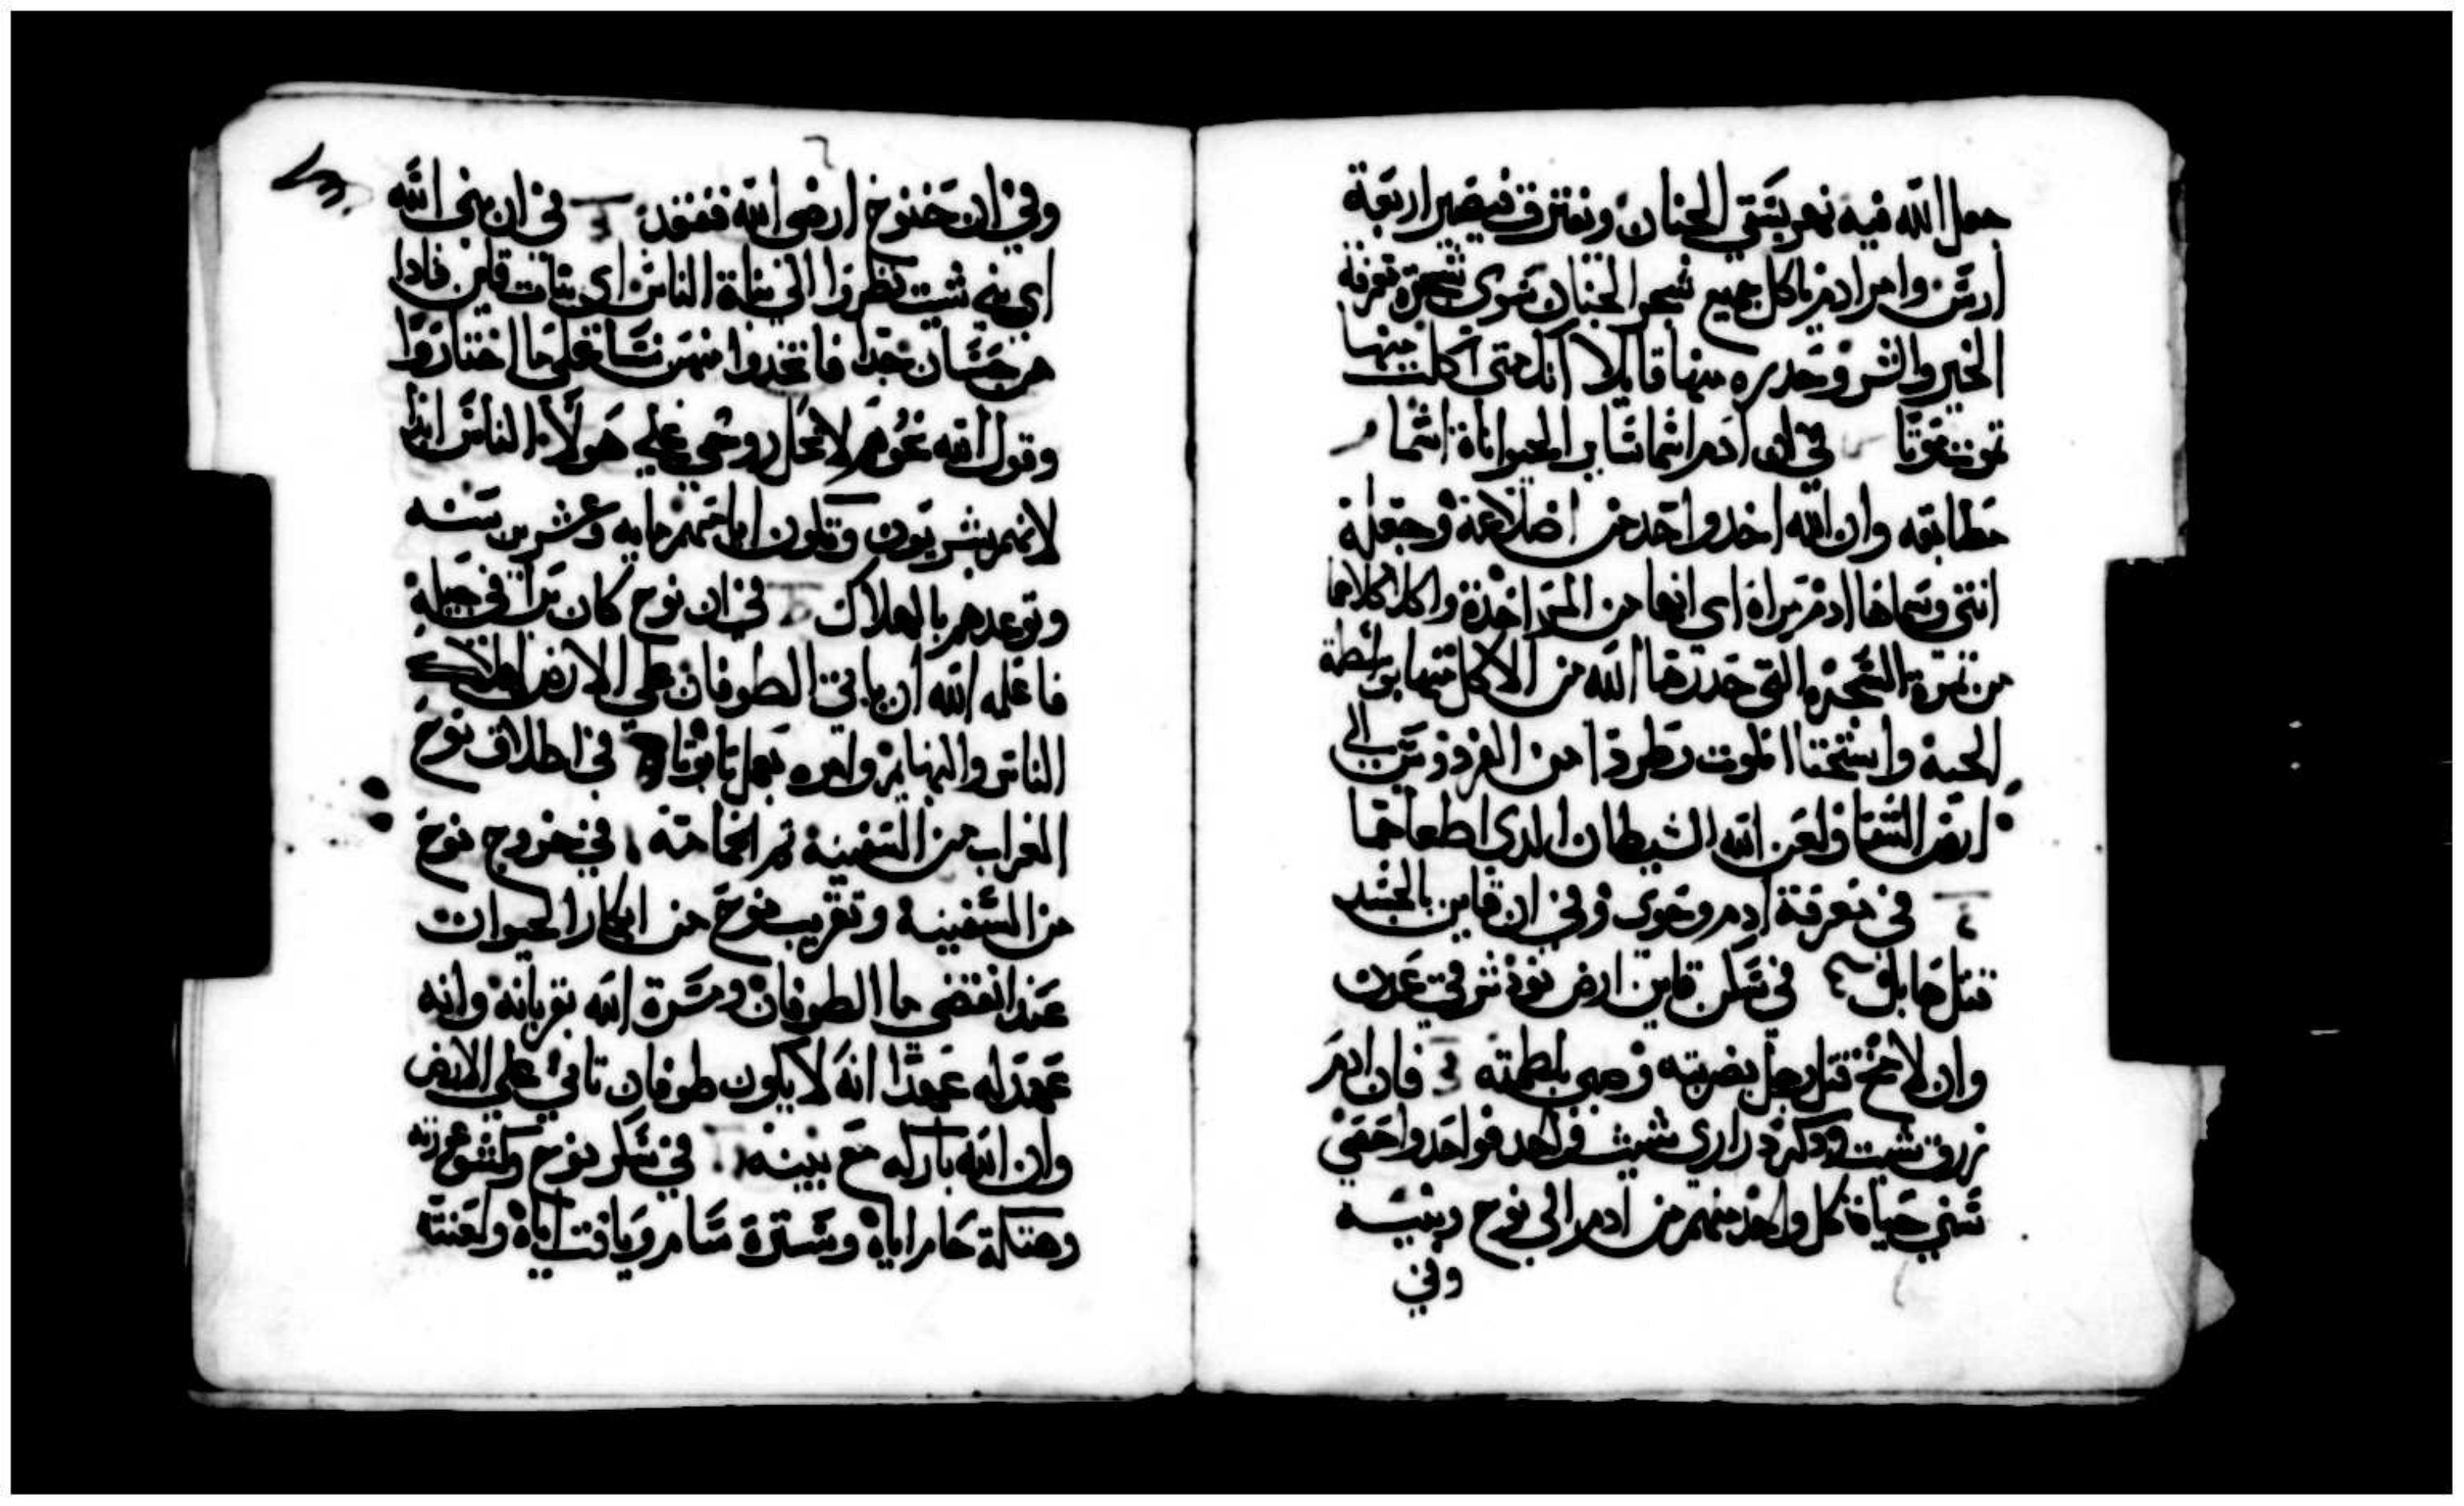 جعل الله فيه نهر يسقي الجنان ونفترق فيصير اربعة
ارس وامر ادم ياكل جميع شجر الجنان سوى شجرة معرفة
الخير والشر وحدره منها قايلا انك متى اكلت منها
تموت موتا في ان ادم اسما ساير الحيواناة اسما
مطابقه وان الله اخد واحد من اضلاعة وجعلة
انتي وسماها ادم مراه اي انها من المر اخذة واكلا كلاهما
من تمرة الشجره التي حدرها الله من الاكل منها بواسطة
الحية واستحقا الموت وطردا من الفردوس الي
ارض الشقا ولعن الله الشيطان الدي اطعاهما
٤ في معرفة ادم وحوى وفي ان قاين بالحسد
قتل هابل في سكن قاين ارض نود شرقي عدن
وان لامخ قتل رجل بضربته وصبي بلطمته فان ادم
زرق شيت ودكر دراري شيث فواحد فواحد واحصي
سني حياة كل واحد منهم من ادم الى نوح وبنيه
وفي
٦
وفي ان خنوخ ارضى الله ففقد في ان بني الله
اي بني شيت نظروا الى بناة الناس اي بنات قاين فادا
هن حسان جدا فاتخدوا منهن نسا على ما اختاروا
وقول الله نحوهم لا تحل روحي علي هولاء الناس ابدا
لانهم بشريون وتكون ايامهم مايه وعشرين سنه
وتوعدهم بالهلاك في ان نوح كان برا في جيله
فاعلمه الله ان ياتي الطوفان على الارض لهلاك
الناس والبهايم وامره بعمل تابوتا في اطلاق نوح
الغراب من السفينة تم الحمامة في خروج نوح
من السفينه وتقريب نوح من ابكار الحيوان
عند انقضي ما الطوفان ومسرة الله بقربانه وانه
عهد له عهدا انه لا يكون طوفان تاني علي الارض
وان الله باركه مع بنيه في سكر نوح وكشف عورته
وهتكة حام اباه وسترة سام ويافت اباه ولعنته